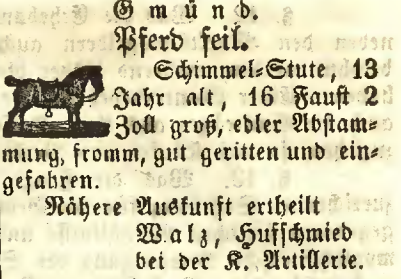 Gmünd.
Pferd feil.
Schimmel-Stute, 13
Jahr alt, 16 Faust 2
Zoll groß, edler Abstam-
mung, fromm, gut geritten und ein-
gefahren.
Nähere Auskunft ertheilt
Walz, Hufschmied
bei der K. Artillerie.